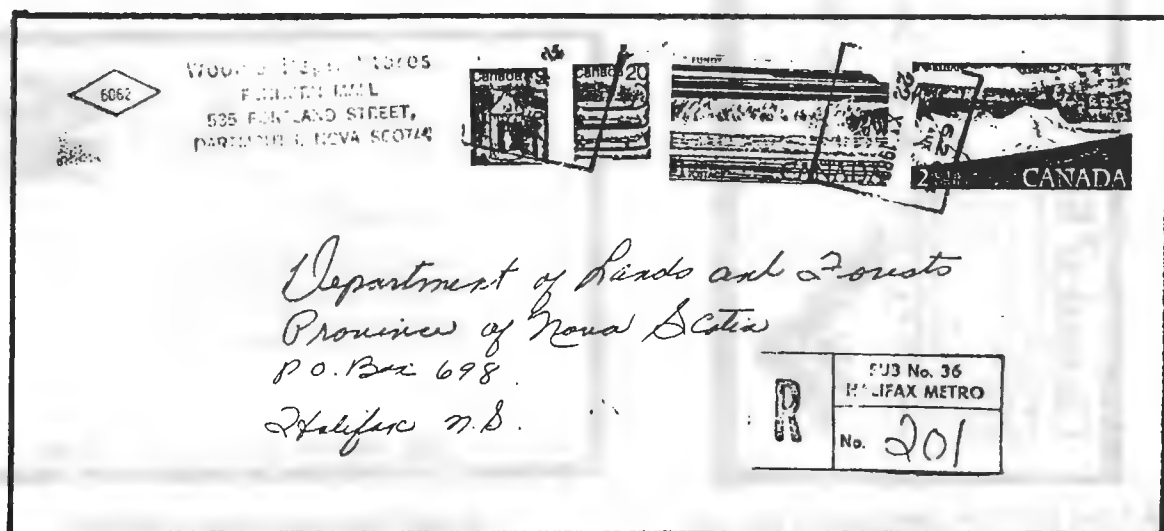 6062
535 PORTLAND STREET,
NOVA SCOTIA
Canada
Canada 20
CANADA
2 CANADA
Department of Lands and Forests
Province of Nova Scotia
P.O. Box 698
Halifax N.S.
R
SUB No. 36
HALIFAX METRO
No. 201